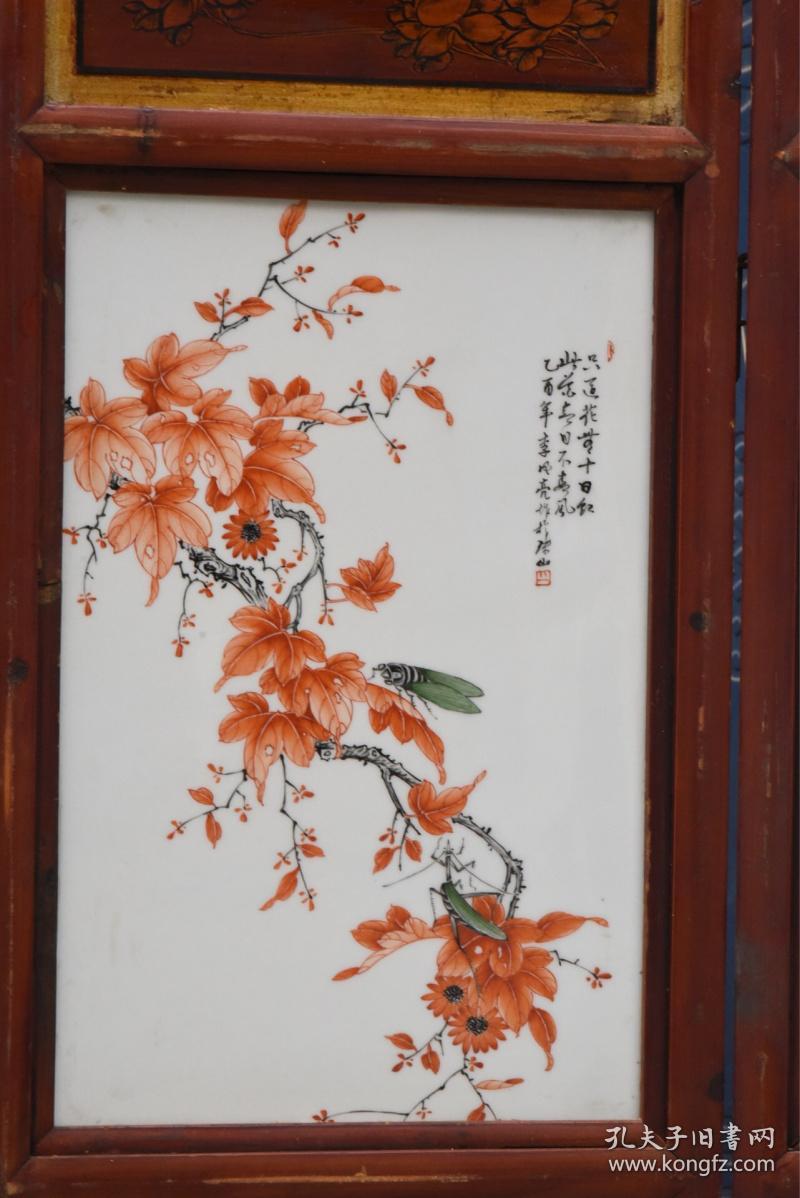 只道花无十日红
此花无日不春风
乙酉年李
亮作於珠山
孔夫子旧书网
www.kongfz.com